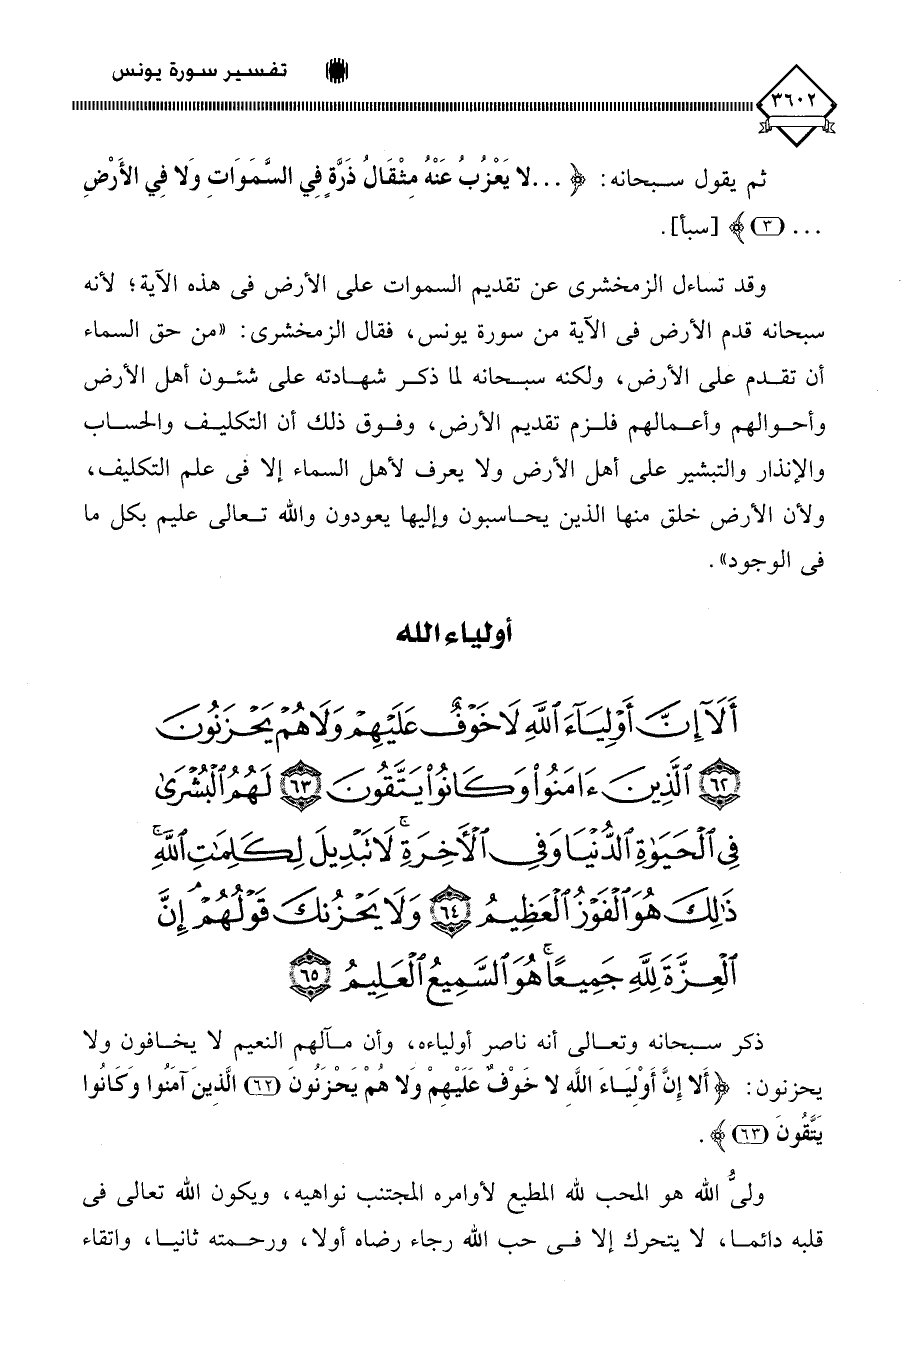 تفسير سورة يونس
٣٦٠٢
ثم يقول سبحانه: ﴿ ...لا يَعْزُبُ عَنْهُ مِثْقَالُ ذَرَّةٍ فِي السَّمَوَاتِ وَلا فِي الأَرْضِ
... (٣)﴾ [سبأ].
وقد تساءل الزمخشرى عن تقديم السموات على الأرض فى هذه الآية؛ لأنه
سبحانه قدم الأرض فى الآية من سورة يونس، فقال الزمخشرى: «من حق السماء
أن تقدم على الأرض، ولكنه سبحانه لما ذكر شهادته على شئون أهل الأرض
وأحوالهم وأعمالهم فلزم تقديم الأرض، وفوق ذلك أن التكليف والحساب
والإنذار والتبشير على أهل الأرض ولا يعرف لأهل السماء إلا فى علم التكليف،
ولأن الأرض خلق منها الذين يحاسبون وإليها يعودون والله تعالى عليم بكل ما
فى الوجود».
أولياء الله
أَلَآ إِنَّ أَوْلِيَآءَ ٱللَّهِ لَا خَوْفٌ عَلَيْهِمْ وَلَا هُمْ يَحْزَنُونَ
٦٢ ٱلَّذِينَ ءَامَنُواْ وَكَانُواْ يَتَّقُونَ ٦٣ لَهُمُ ٱلْبُشْرَىٰ
فِى ٱلْحَيَوٰةِ ٱلدُّنْيَا وَفِى ٱلْأَخِرَةِۚ لَا تَبْدِيلَ لِكَلِمَٰتِ ٱللَّهِۚ
ذَٰلِكَ هُوَ ٱلْفَوْزُ ٱلْعَظِيمُ ٦٤ وَلَا يَحْزُنكَ قَوْلُهُمْۘ إِنَّ
ٱلْعِزَّةَ لِلَّهِ جَمِيعًاۚ هُوَ ٱلسَّمِيعُ ٱلْعَلِيمُ ٦٥
ذكر سبحانه وتعالى أنه ناصر أولياءه، وأن مآلهم النعيم لا يخافون ولا
يحزنون: ﴿أَلا إِنَّ أَوْلِيَاءَ اللَّهِ لا خَوْفٌ عَلَيْهِمْ وَلا هُمْ يَحْزَنُونَ (٦٢) الَّذِينَ آمَنُوا وَكَانُوا
يَتَّقُونَ (٦٣)﴾.
ولىُّ الله هو المحب لله المطيع لأوامره المجتنب نواهيه، ويكون الله تعالى فى
قلبه دائما، لا يتحرك إلا فى حب الله رجاء رضاه أولا، ورحمته ثانيا، واتقاء